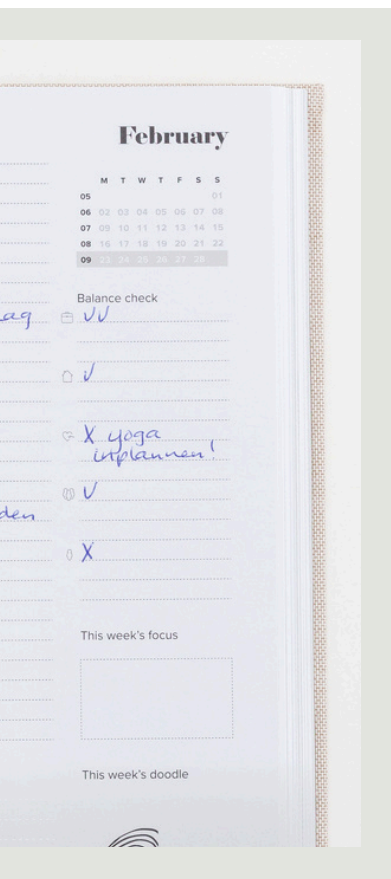 February
M T W T F S S
05 01
06 02 03 04 05 06 07 08
07 09 10 11 12 13 14 15
08 16 17 18 19 20 21 22
09 23 24 25 26 27 28
Balance check
ag VV
V
X yoga
inplannen!
V
den
X
This week's focus
This week's doodle